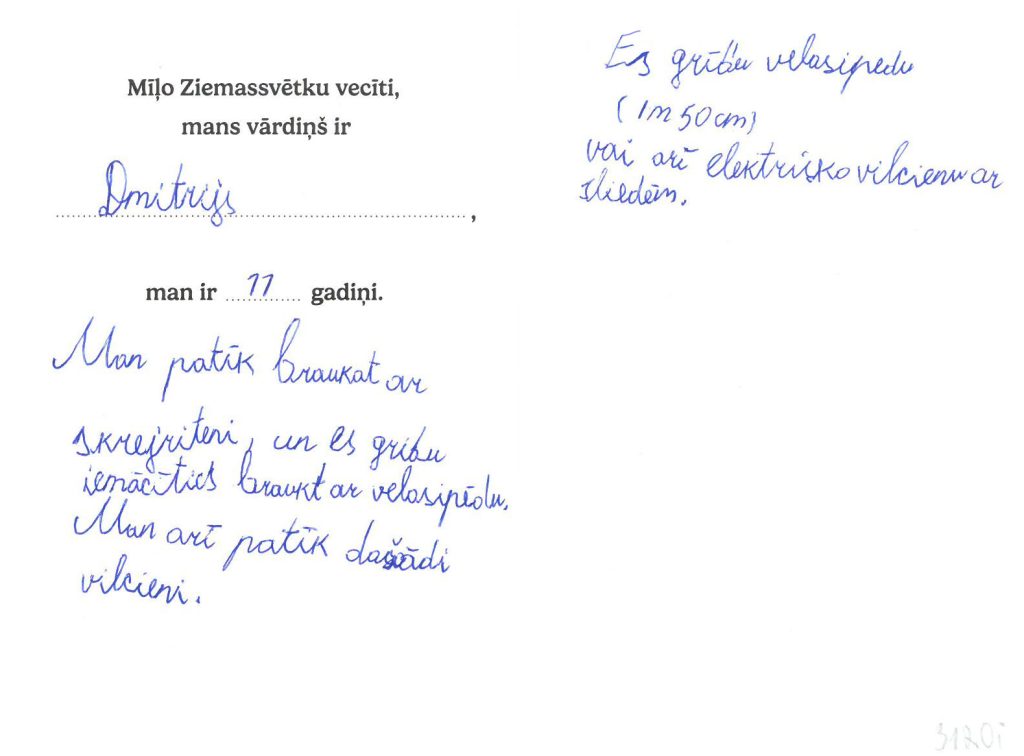 Mīļo Ziemassvētku vecīti,
mans vārdiņš ir
Dmitrijs
,
man ir 11 gadiņi.
Man patīk braukat ar
skrejriteni, un es gribu
iemācīties braukt ar velosipēdu.
Man arī patīk dažādi
vilcieni.
Es grību velosipedu
(1m 50cm)
vai arī elektrisko vilcienu ar
sliedēm.